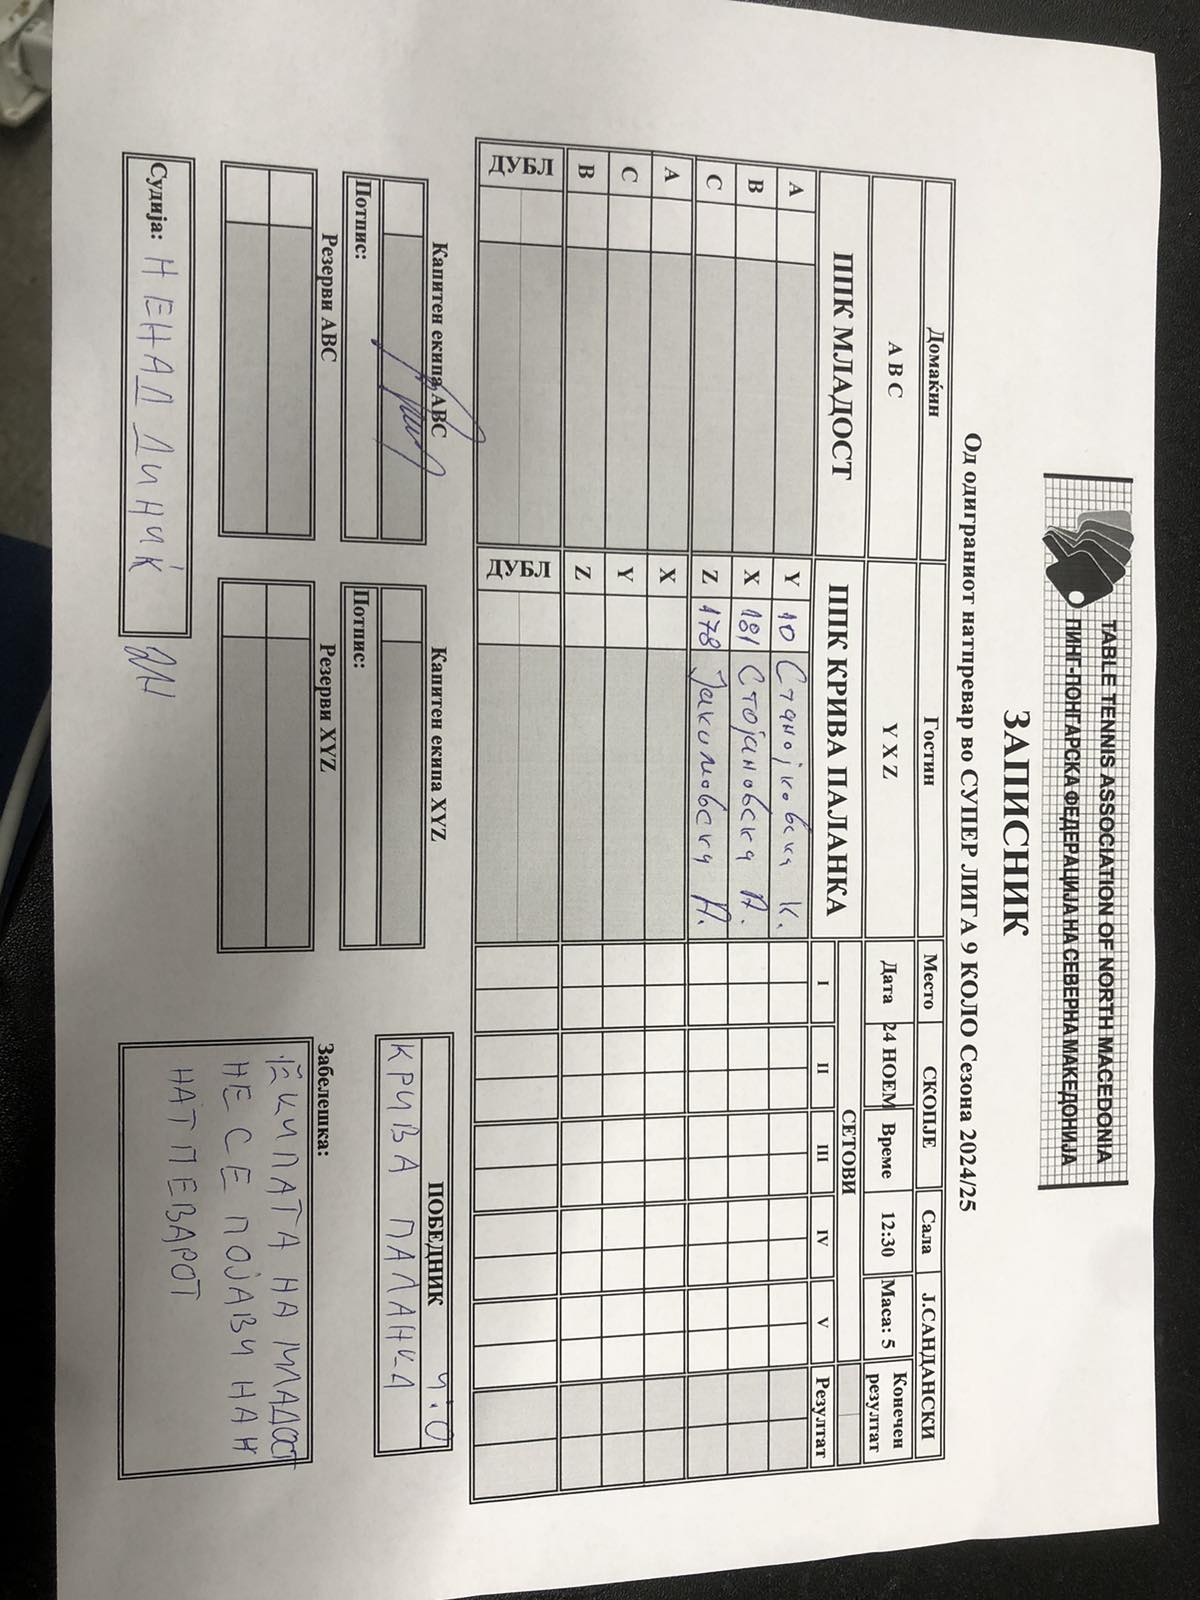 TABLE TENNIS ASSOCIATION OF NORTH MACEDONIA
ПИНГ-ПОНГАРСКА ФЕДЕРАЦИЈА НА СЕВЕРНА МАКЕДОНИЈА
ЗАПИСНИК
Од одиграниот натпревар во СУПЕР ЛИГА 9 КОЛО Сезона 2024/25
Домаќин Гостин Место СКОПЈЕ Сала Ј.САНДАНСКИ
A B C Y X Z Дата 24 НОЕМ Време 12:30 Маса: 5 Конечен резултат
ППК МЛАДОСТ ППК КРИВА ПАЛАНКА СЕТОВИ
I II III IV V Резултат
A Y 10 Станојковска К.
B X 181 Стојановска А.
C Z 178 Јакимовска А.
A X
C Y
B Z
ДУБЛ ДУБЛ
Капитен екипа ABC Капитен екипа XYZ ПОБЕДНИК 4:0
КРИВА ПАЛАНКА
Потпис: Потпис:
Резерви ABC Резерви XYZ Забелешка:
ЕКИПАТА НА МЛАДОСТ
НЕ СЕ ПОЈАВИ НА Н
НАТПЕВАРОТ
Судија: НЕНАД ДИНИЌ